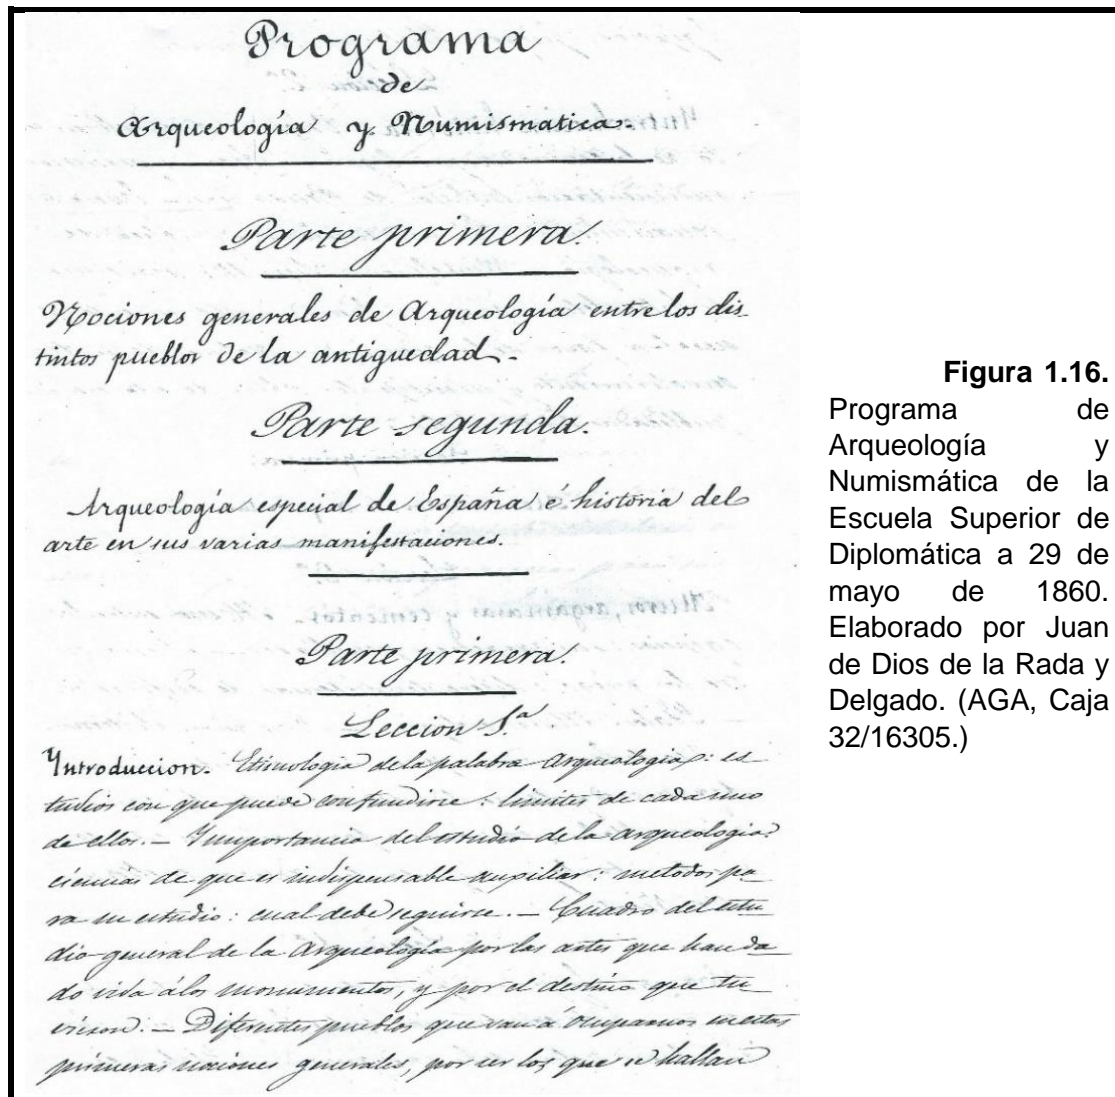 Programa
de
Arqueología y Numismatica.
Parte primera.
Nociones generales de Arqueología entre los dis-
tintos pueblos de la antiguedad.
Parte segunda.
Arqueología especial de España é historia del
arte en sus varias manifestaciones.
Parte primera.
Leccion 1ª
Introduccion. Etimologia de la palabra Arqueologia: es-
tudios con que puede confundirse: limites de cada uno
de ellos. — Importancia del estudio de la arqueologia:
ciencias de que es indispensable auxiliar: metodos pa-
ra su estudio: cual debe seguirse. — Cuadro del estu-
dio general de la Arqueología por las artes que han da-
do vida á los monumentos, y por el destino que tu-
vieron. — Diferentes pueblos que van á ocuparnos en estas
primeras nociones generales, por ser los que se hallan
Figura 1.16.
Programa de
Arqueología y
Numismática de la
Escuela Superior de
Diplomática a 29 de
mayo de 1860.
Elaborado por Juan
de Dios de la Rada y
Delgado. (AGA, Caja
32/16305.)